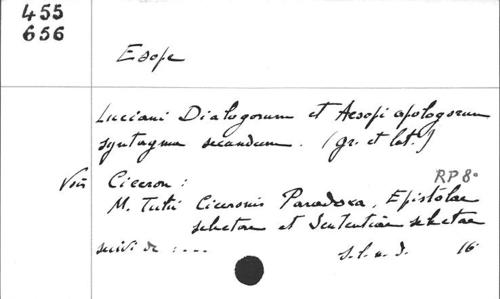 455
656
Esope
Luciani Dialogorum et Aesopi apologorum
syntagma secundum. (gr. et lat.)
Voir Ciceron :
RP 8°
M. Tutii Ciceronis Paradoxa, Epistolae
selectae et Sententiae selectae
suivi de : ... s.l.n.d. 16°